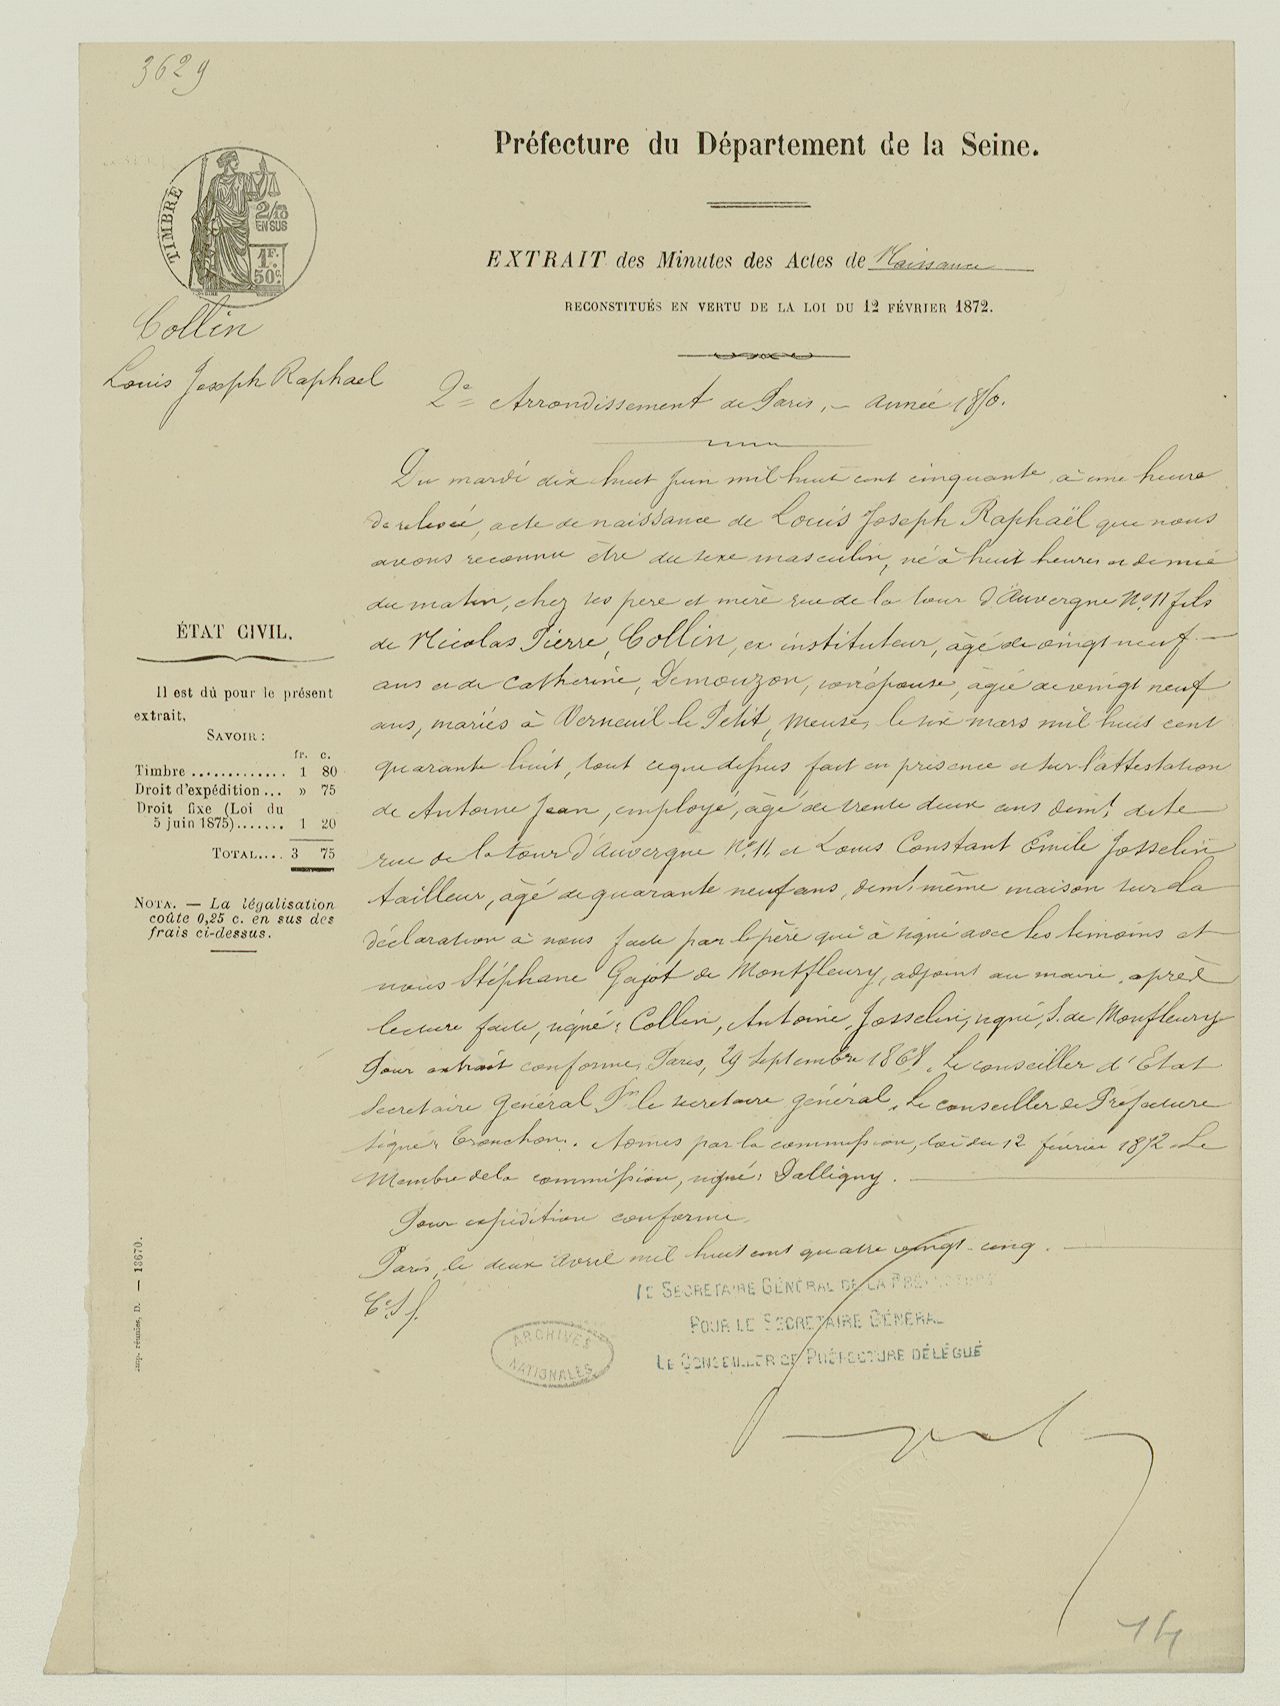 3629
Préfecture du Département de la Seine.
TIMBRE
2/10
EN SUS
1F.
50c.
EXTRAIT des Minutes des Actes de Naissance
RECONSTITUÉS EN VERTU DE LA LOI DU 12 FÉVRIER 1872.
Collin
Louis Joseph Raphael
2e Arrondissement de Paris, – année 1850.
Du mardi dix huit juin mil huit cent cinquante, à une heure
de relevée, acte de naissance de Louis Joseph Raphaël que nous
avons reconnu être du sexe masculin, né à huit heures et demie
du matin, chez ses père et mère rue de la tour d'Auvergne No. 11 fils
de Nicolas Pierre, Collin, ex instituteur, âgé de vingt neuf
ans et de Catherine, Demouzon, son épouse, âgée de vingt neuf
ans, mariés à Verneuil le Petit, Meuse, le six mars mil huit cent
quarante huit, tout ce que dessus fait en présence et sur l'attestation
de Antoine Jean, employé, âgé de trente deux ans demt. dite
rue de la tour d'Auvergne No. 11, et Louis Constant Emile Josselin
tailleur, âgé de quarante neuf ans, demt. même maison sur la
déclaration à nous faite par le père qui à signé avec les témoins et
nous Stéphane Gajot de Montfleury, adjoint au maire, après
lecture faite, signé: Collin, Antoine, Josselin, signé, S. de Monfleury
Pour extrait conforme, Paris, 29 septembre 1868. Le conseiller d'Etat
Secretaire Général Pr. le secretaire général, Le conseiller de Préfecture
signé: Tronchon. Admis par la commission, loi du 12 février 1872. Le
Membre de la commission, signé: Dalligny.
Pour expédition conforme,
Paris, le deux Avril mil huit cent quatre vingt-cinq.
ÉTAT CIVIL.
Il est dû pour le présent
extrait,
SAVOIR:
fr. c.
Timbre ............. 1 80
Droit d'expédition ... » 75
Droit fixe (Loi du
5 juin 1875)....... 1 20
TOTAL.... 3 75
NOTA. — La légalisation
coûte 0,25 c. en sus des
frais ci-dessus.
Imp. réunies, D. — 18670.
LE SECRÉTAIRE GÉNÉRAL DE LA PRÉFECTURE
POUR LE SECRÉTAIRE GÉNÉRAL
LE CONSEILLER DE PRÉFECTURE DÉLÉGUÉ
ARCHIVES
NATIONALES
14